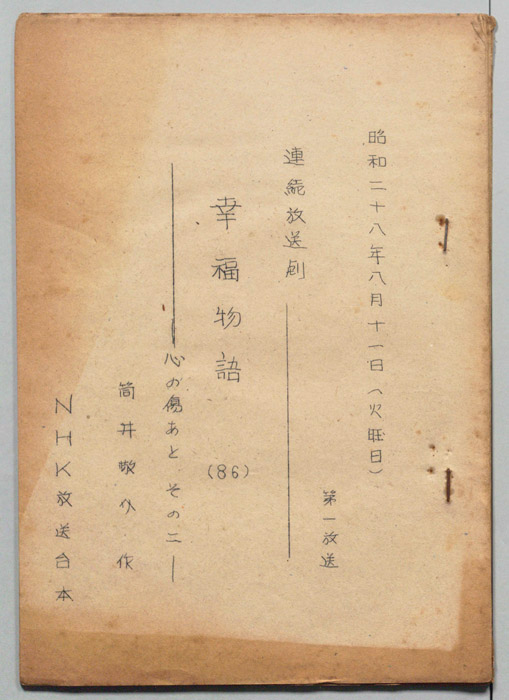 昭和二十八年八月十一日(火旺日)
第一放送
連続放送劇
幸福物語 (86)
―心の傷あと その二―
筒井敬介 作
NHK放送台本